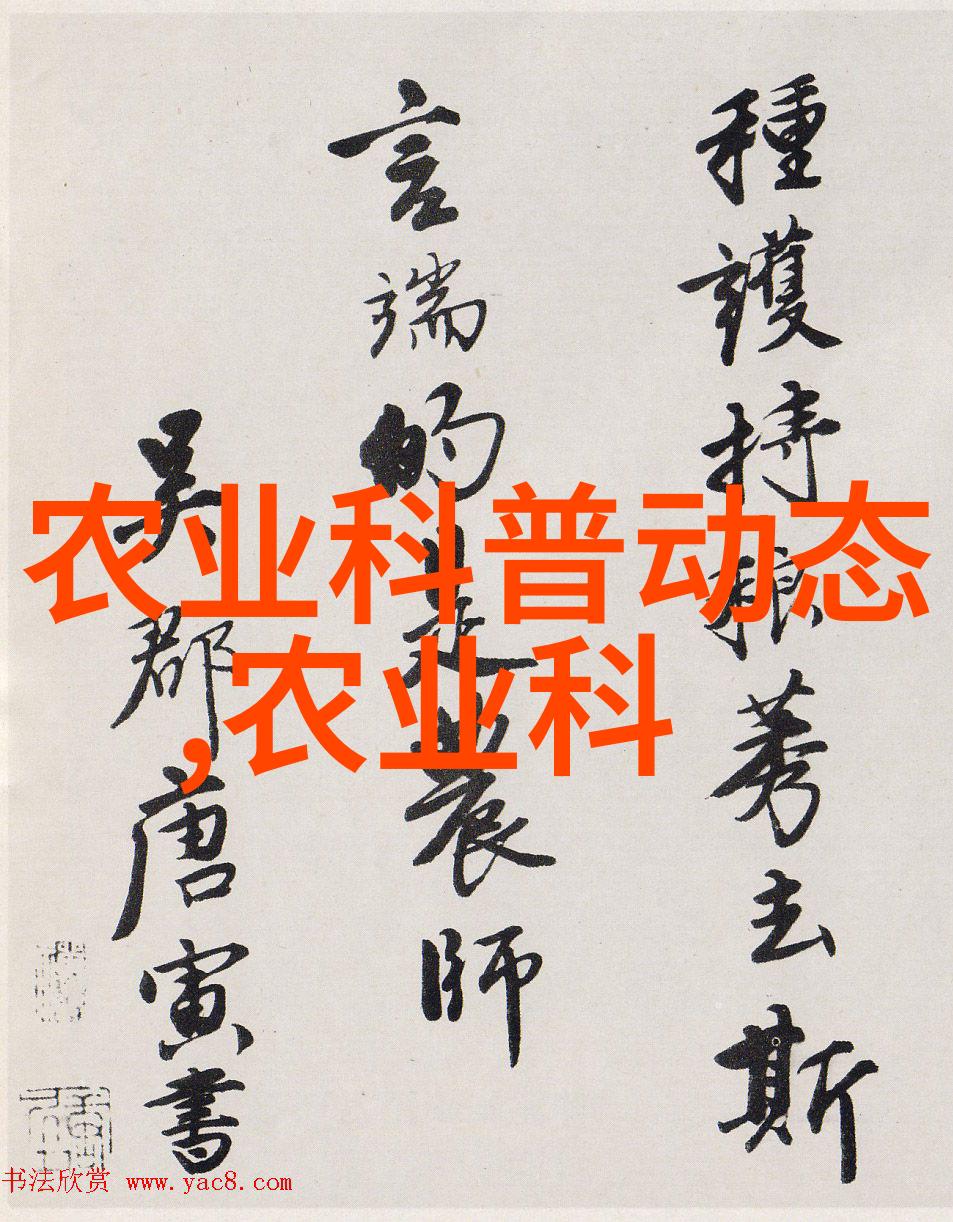 種護持稂莠去斯
言端的是農師
吳郡唐寅書
农业科普动态
,农业科
书法欣赏 www.yac8.com